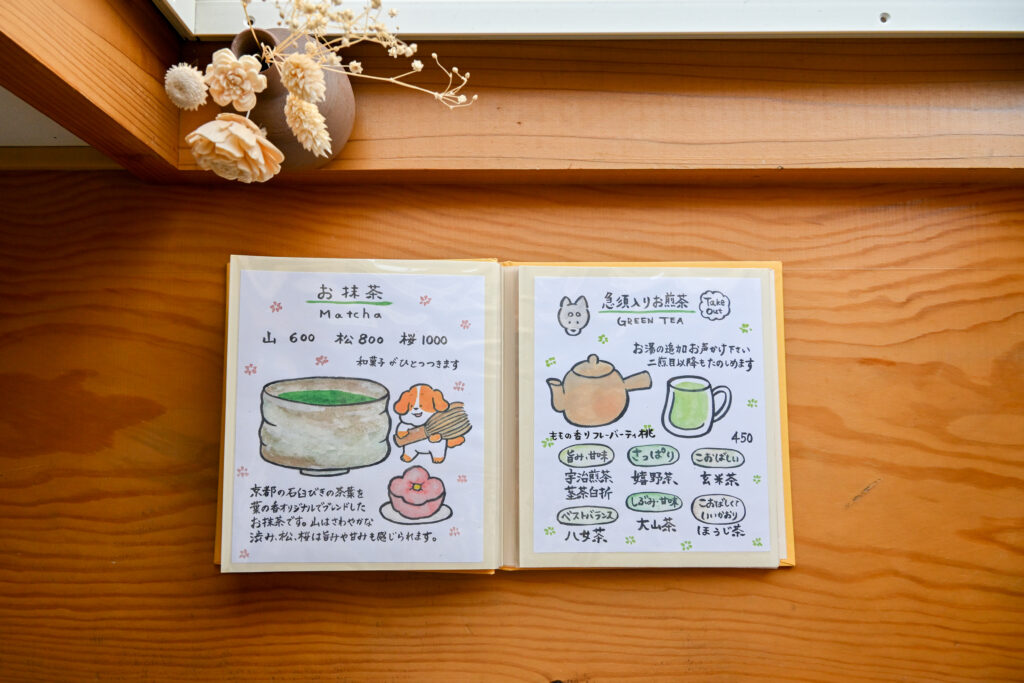 お抹茶
Matcha
山 600 松 800 桜 1000
和菓子がひとつつきます
京都の石臼びきの茶葉を
葉の香オリジナルでブレンドした
お抹茶です。山はさわやかな
渋み、松、桜は旨みや甘みも感じられます。
急須入りお煎茶
GREEN TEA
Take Out
お湯の追加お声かけ下さい
二煎目以降もたのしめます
ももの香りフレーバーティ桃
450
旨み・甘味
宇治煎茶
茎茶白折
さっぱり
嬉野茶
こおばしい
玄米茶
ベストバランス
八女茶
しぶみ・甘味
大山茶
こおばしく
いいかおり
ほうじ茶